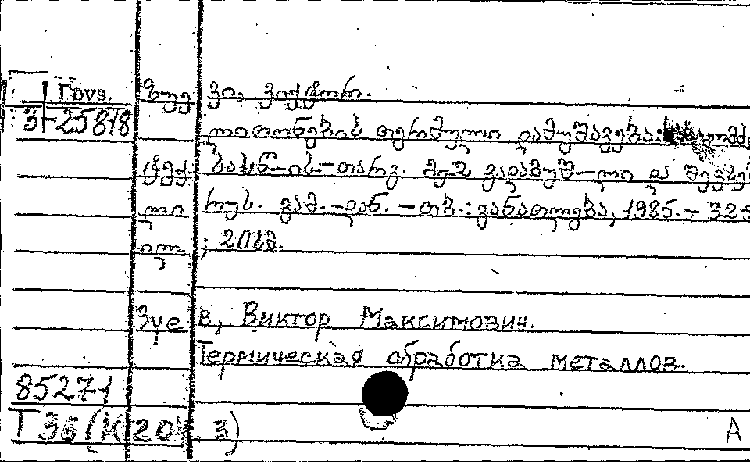 Груз.
3-25818
ზუევი, ვიქტორ.
ლითონების თერმული დამუშავება:
ტექ. სასწ-ის-თარგ. მე-2 გადამუშ-ლი და შევსე
ლი რუს. გამ.-დან. - თბ.: განათლება, 1985. - 325
ილ.; 20სმ.
Зуев, Виктор Максимович.
Термическая обработка металлов.
85271
Т 36(К 20 3)
А